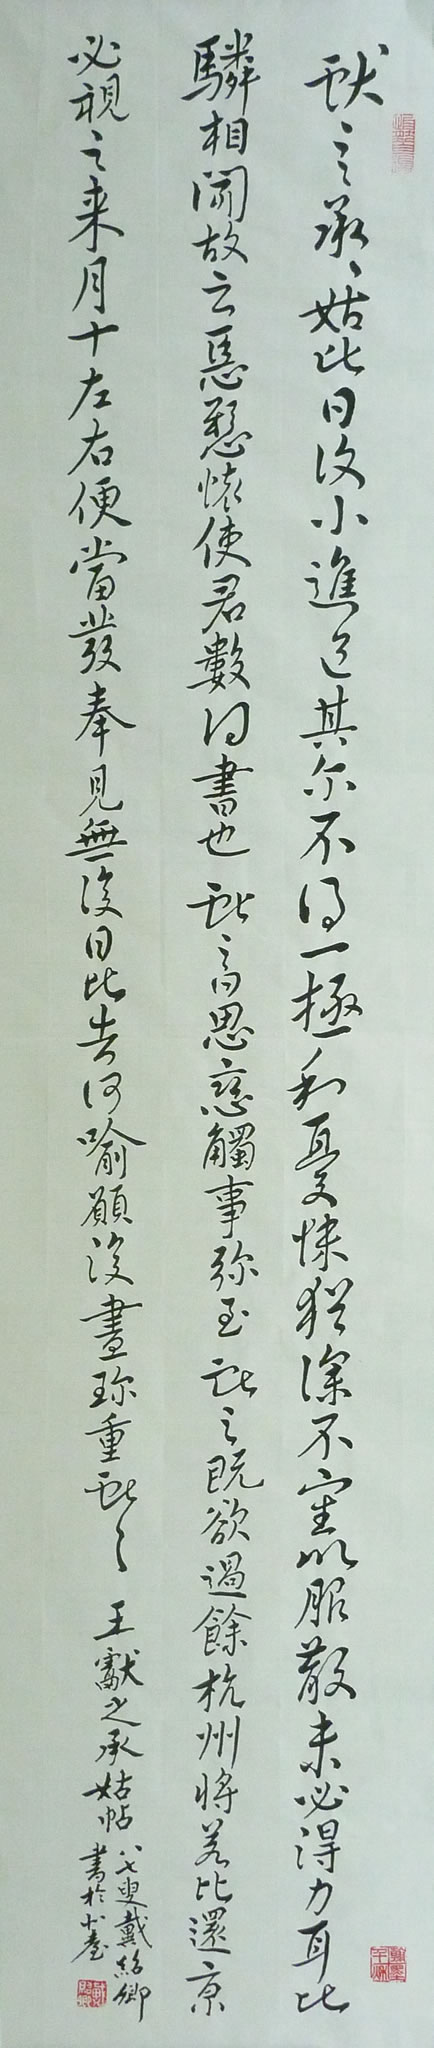 献之承承姑比日復小進退其尔不得一極和憂悚猶深不審以服散未必得力耳比
驎相聞故云惡懸懷使君數得書也獻之言思戀觸事弥至獻之既欲過餘杭州將若比還京
必視之来月十左右便當發奉見無復日比告何喻願復盡珍重獻之
王獻之承姑帖
八七叟戴紹卿
書於